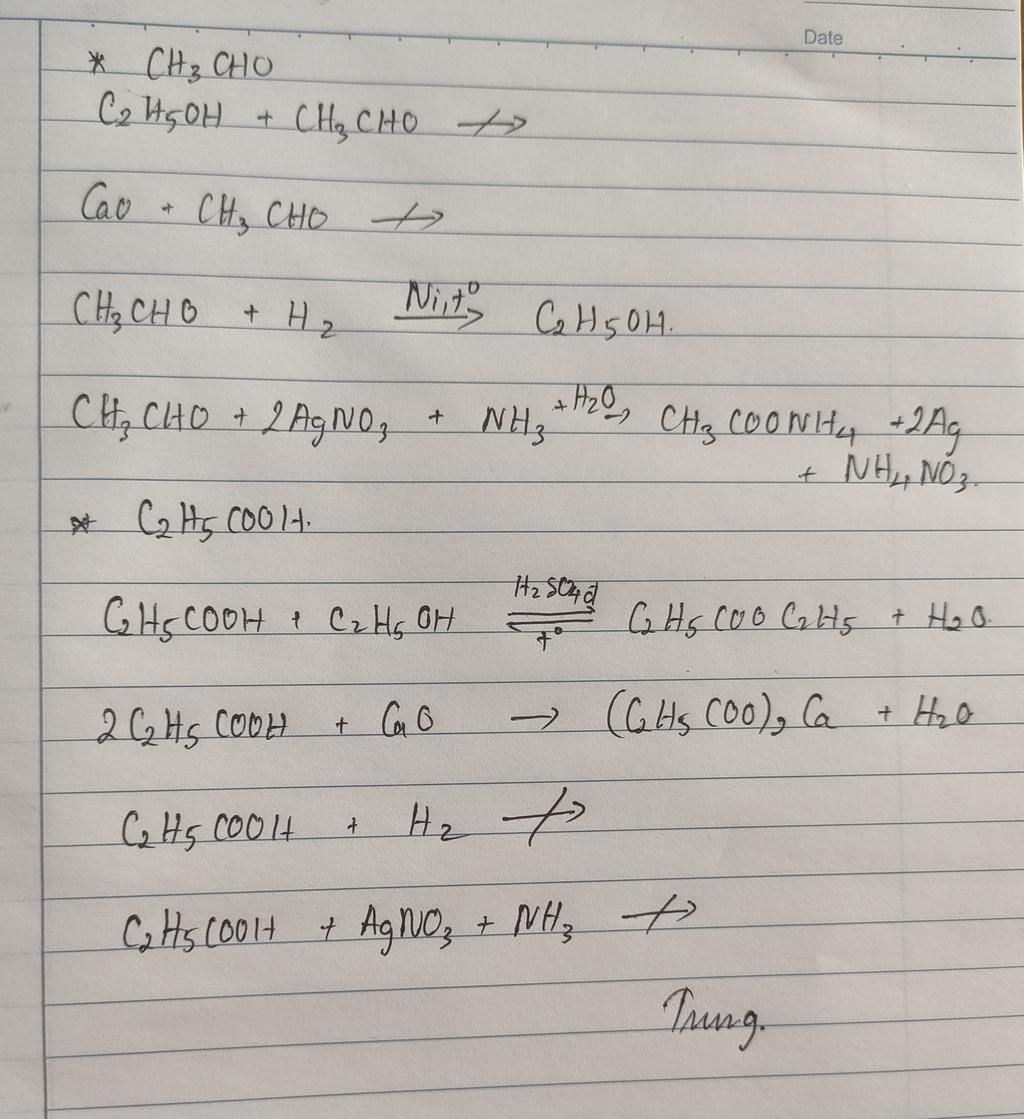 Date
* CH₃CHO
C₂H₅OH + CH₃CHO ↛
CaO + CH₃CHO ↛
CH₃CHO + H₂ →(Ni, t°) C₂H₅OH.
CH₃CHO + 2AgNO₃ + NH₃ →(+H₂O) CH₃COONH₄ + 2Ag
+ NH₄NO₃.
* C₂H₅COOH.
C₂H₅COOH + C₂H₅OH ⇌(H₂SO₄đ, t°) C₂H₅COOC₂H₅ + H₂O.
2C₂H₅COOH + CaO → (C₂H₅COO)₂Ca + H₂O
C₂H₅COOH + H₂ ↛
C₂H₅COOH + AgNO₃ + NH₃ ↛
Trung.